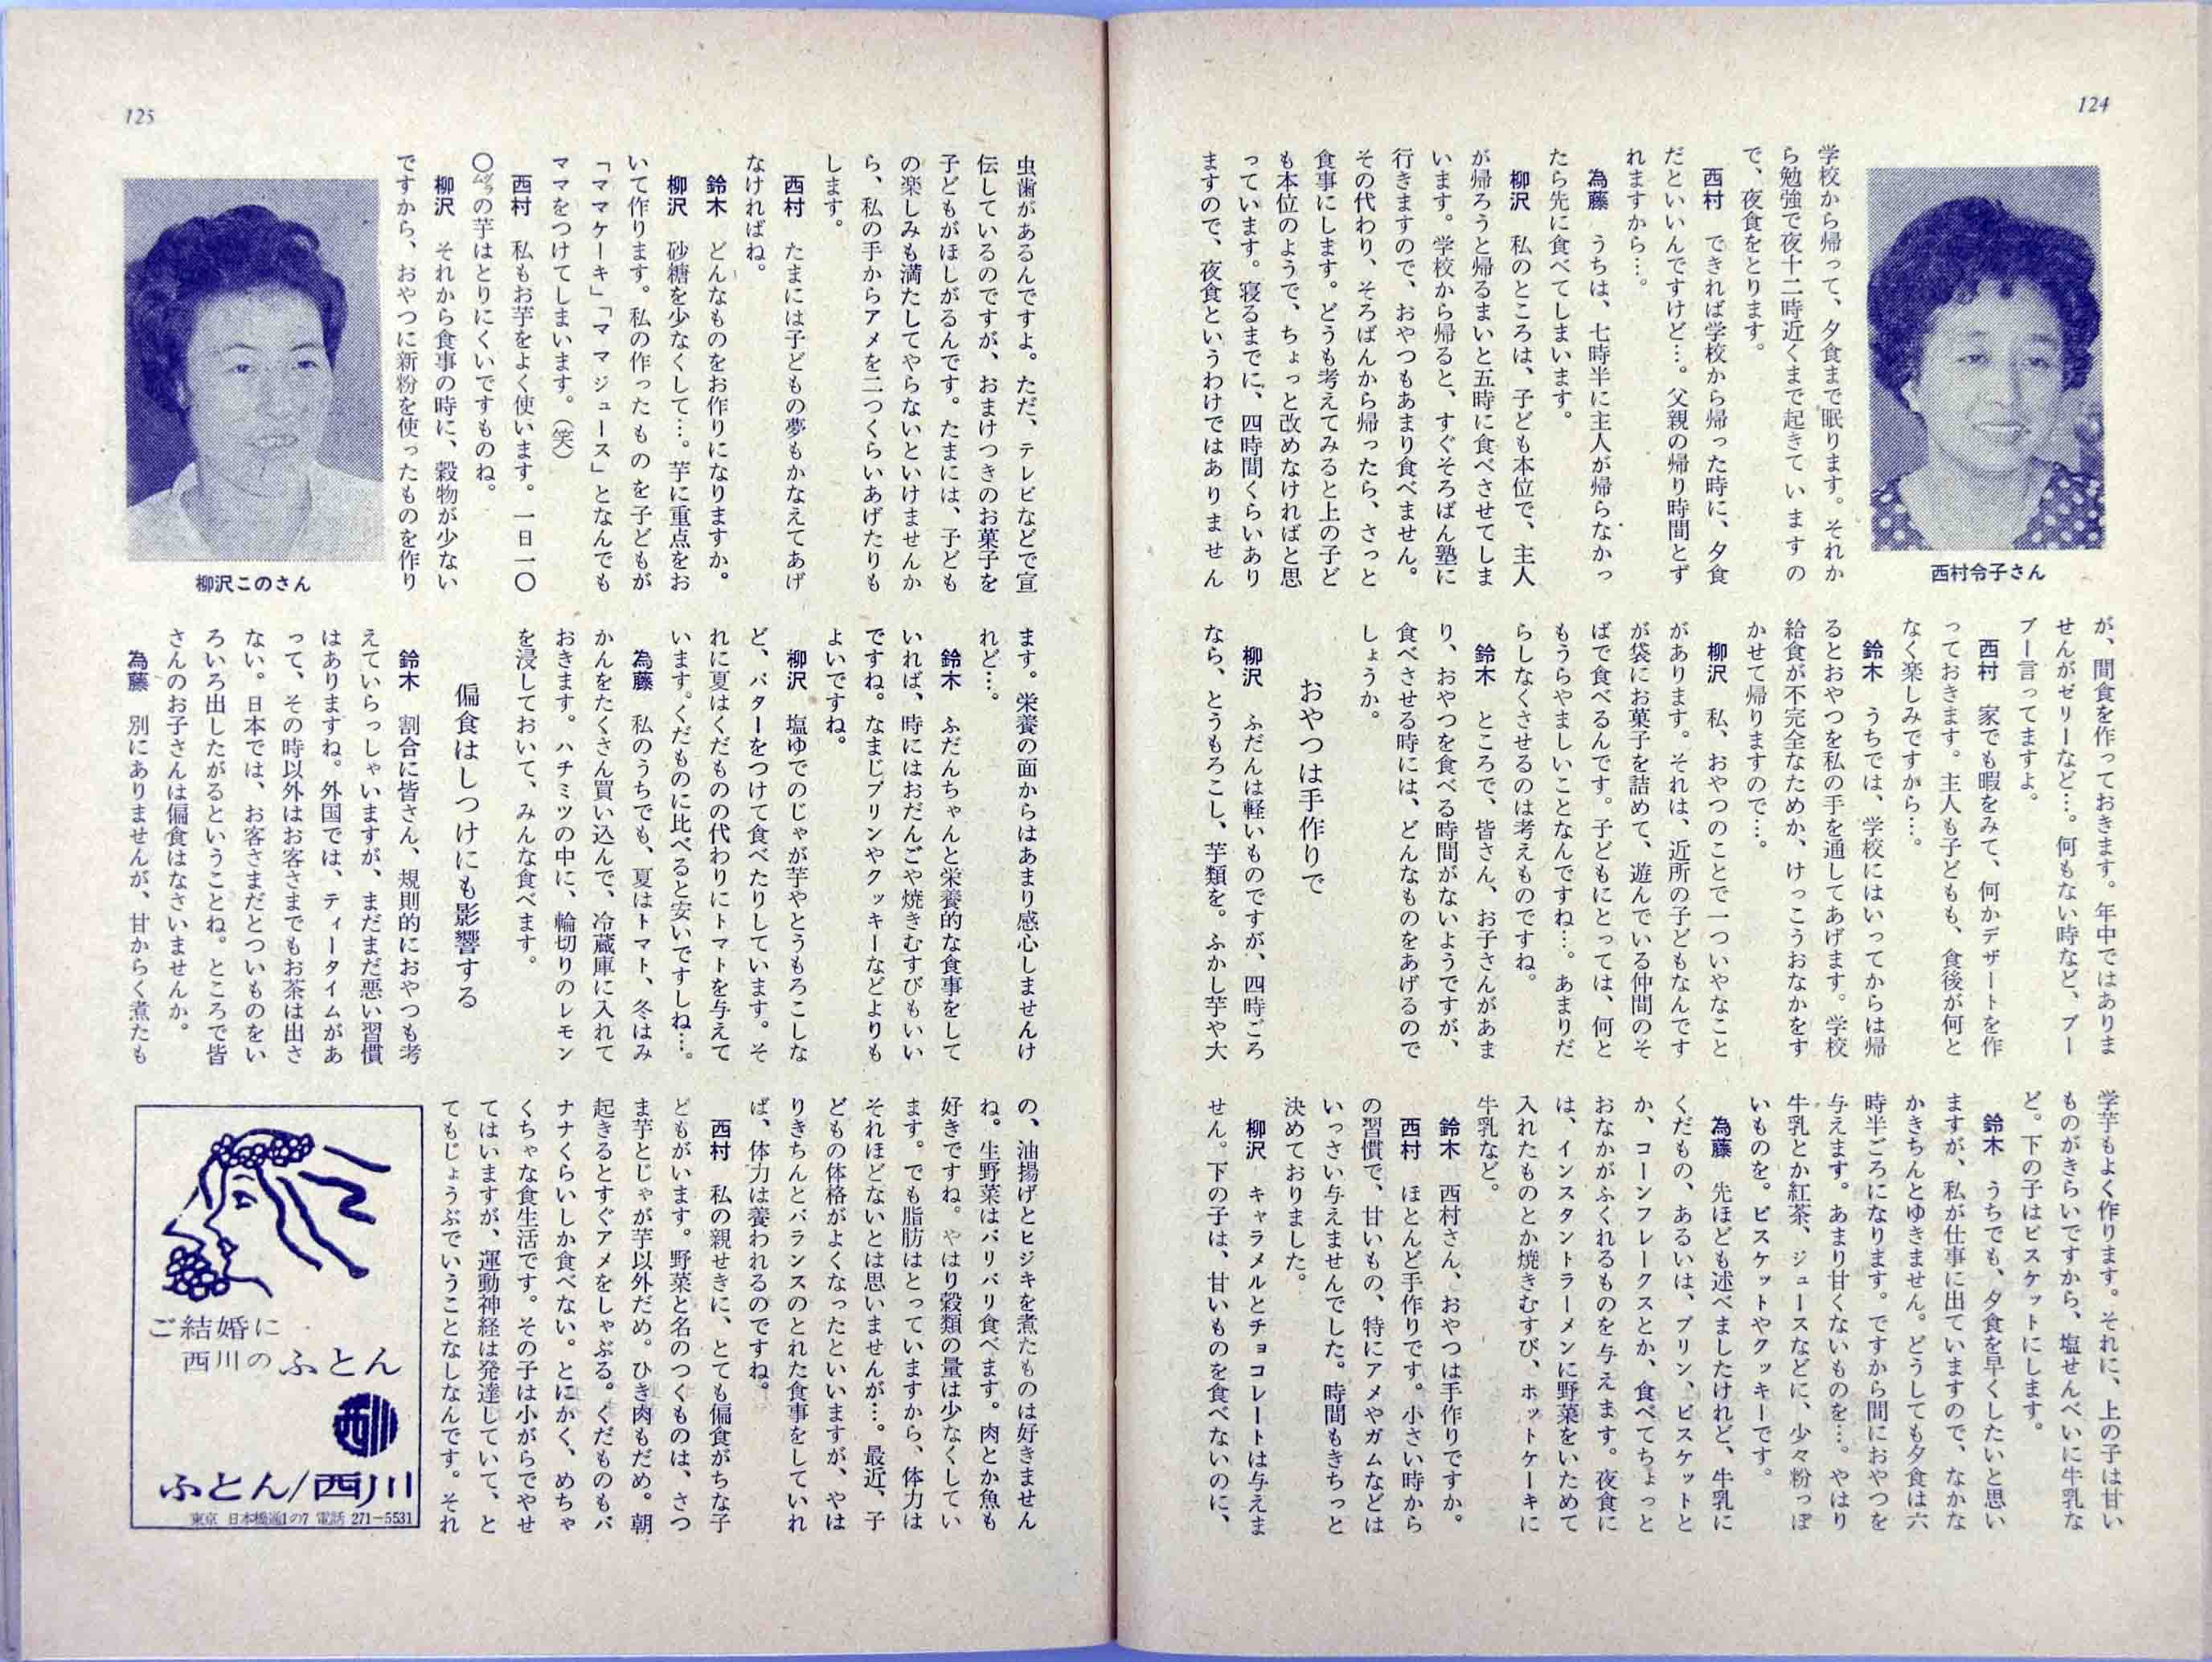 124
西村令子さん
学校から帰って、夕食まで眠ります。それか
ら勉強で夜十二時近くまで起きていますの
で、夜食をとります。
西村　できれば学校から帰った時に、夕食
だといいんですけど…。父親の帰り時間とず
れますから…。
為藤　うちは、七時半に主人が帰らなかっ
たら先に食べてしまいます。
柳沢　私のところは、子ども本位で、主人
が帰ろうと帰るまいと五時に食べさせてしま
います。学校から帰ると、すぐそろばん塾に
行きますので、おやつもあまり食べません。
その代わり、そろばんから帰ったら、さっと
食事にします。どうも考えてみると上の子ど
も本位のようで、ちょっと改めなければと思
っています。寝るまでに、四時間くらいあり
ますので、夜食というわけではありません
が、間食を作っておきます。年中ではありま
せんがゼリーなど…。何もない時など、ブー
ブー言ってますよ。
西村　家でも暇をみて、何かデザートを作
っておきます。主人も子どもも、食後が何と
なく楽しみですから…。
鈴木　うちでは、学校にはいってからは帰
るとおやつを私の手を通してあげます。学校
給食が不完全なためか、けっこうおなかをす
かせて帰りますので…。
柳沢　私、おやつのことで一ついやなこと
があります。それは、近所の子どもなんです
が袋にお菓子を詰めて、遊んでいる仲間のそ
ばで食べるんです。子どもにとっては、何と
もうらやましいことなんですね…。あまりだ
らしなくさせるのは考えものですね。
鈴木　ところで、皆さん、お子さんがあま
り、おやつを食べる時間がないようですが、
食べさせる時には、どんなものをあげるので
しょうか。
おやつは手作りで
柳沢　ふだんは軽いものですが、四時ごろ
なら、とうもろこし、芋類を。ふかし芋や大
学芋もよく作ります。それに、上の子は甘い
ものがきらいですから、塩せんべいに牛乳な
ど。下の子はビスケットにします。
鈴木　うちでも、夕食を早くしたいと思い
ますが、私が仕事に出ていますので、なかな
かきちんとゆきません。どうしても夕食は六
時半ごろになります。ですから間におやつを
与えます。あまり甘くないものを…。やはり
牛乳とか紅茶、ジュースなどに、少々粉っぽ
いものを。ビスケットやクッキーです。
為藤　先ほども述べましたけれど、牛乳に
くだもの、あるいは、プリン、ビスケットと
か、コーンフレークスとか、食べてちょっと
おなかがふくれるものを与えます。夜食に
は、インスタントラーメンに野菜をいためて
入れたものとか焼きむすび、ホットケーキに
牛乳など。
鈴木　西村さん、おやつは手作りですか。
西村　ほとんど手作りです。小さい時から
の習慣で、甘いもの、特にアメやガムなどは
いっさい与えませんでした。時間もきちっと
決めておりました。
柳沢　キャラメルとチョコレートは与えま
せん。下の子は、甘いものを食べないのに、
125
虫歯があるんですよ。ただ、テレビなどで宣
伝しているのですが、おまけつきのお菓子を
子どもがほしがるんです。たまには、子ども
の楽しみも満たしてやらないといけませんか
ら、私の手からアメを二つくらいあげたりも
します。
西村　たまには子どもの夢もかなえてあげ
なければね。
鈴木　どんなものをお作りになりますか。
柳沢　砂糖を少なくして…。芋に重点をお
いて作ります。私の作ったものを子どもが
「ママケーキ」「ママジュース」となんでも
ママをつけてしまいます。（笑）
西村　私もお芋をよく使います。一日一〇
〇㌘の芋はとりにくいですものね。
柳沢　それから食事の時に、穀物が少ない
ですから、おやつに新粉を使ったものを作り
柳沢このさん
ます。栄養の面からはあまり感心しませんけ
れど…。
鈴木　ふだんちゃんと栄養的な食事をして
いれば、時にはおだんごや焼きむすびもいい
ですね。なまじプリンやクッキーなどよりも
よいですね。
柳沢　塩ゆでのじゃが芋やとうもろこしな
ど、バターをつけて食べたりしています。そ
れに夏はくだものの代わりにトマトを与えて
います。くだものに比べると安いですしね…。
為藤　私のうちでも、夏はトマト、冬はみ
かんをたくさん買い込んで、冷蔵庫に入れて
おきます。ハチミツの中に、輪切りのレモン
を浸しておいて、みんな食べます。
偏食はしつけにも影響する
鈴木　割合に皆さん、規則的におやつも考
えていらっしゃいますが、まだまだ悪い習慣
はありますね。外国では、ティータイムがあ
って、その時以外はお客さまでもお茶は出さ
ない。日本では、お客さまだとついものをい
ろいろ出したがるということね。ところで皆
さんのお子さんは偏食はなさいませんか。
為藤　別にありませんが、甘からく煮たも
の、油揚げとヒジキを煮たものは好きません
ね。生野菜はバリバリ食べます。肉とか魚も
好きですね。やはり穀類の量は少なくしてい
ます。でも脂肪はとっていますから、体力は
それほどないとは思いませんが…。最近、子
どもの体格がよくなったといいますが、やは
りきちんとバランスのとれた食事をしていれ
ば、体力は養われるのですね。
西村　私の親せきに、とても偏食がちな子
どもがいます。野菜と名のつくものは、さつ
ま芋とじゃが芋以外だめ。ひき肉もだめ。朝
起きるとすぐアメをしゃぶる。くだものもバ
ナナくらいしか食べない。とにかく、めちゃ
くちゃな食生活です。その子は小がらでやせ
てはいますが、運動神経は発達していて、と
てもじょうぶでいうことなしなんです。それ
ご結婚に
西川のふとん
西川
ふとん/西川
東京 日本橋通1の7 電話 271-5531